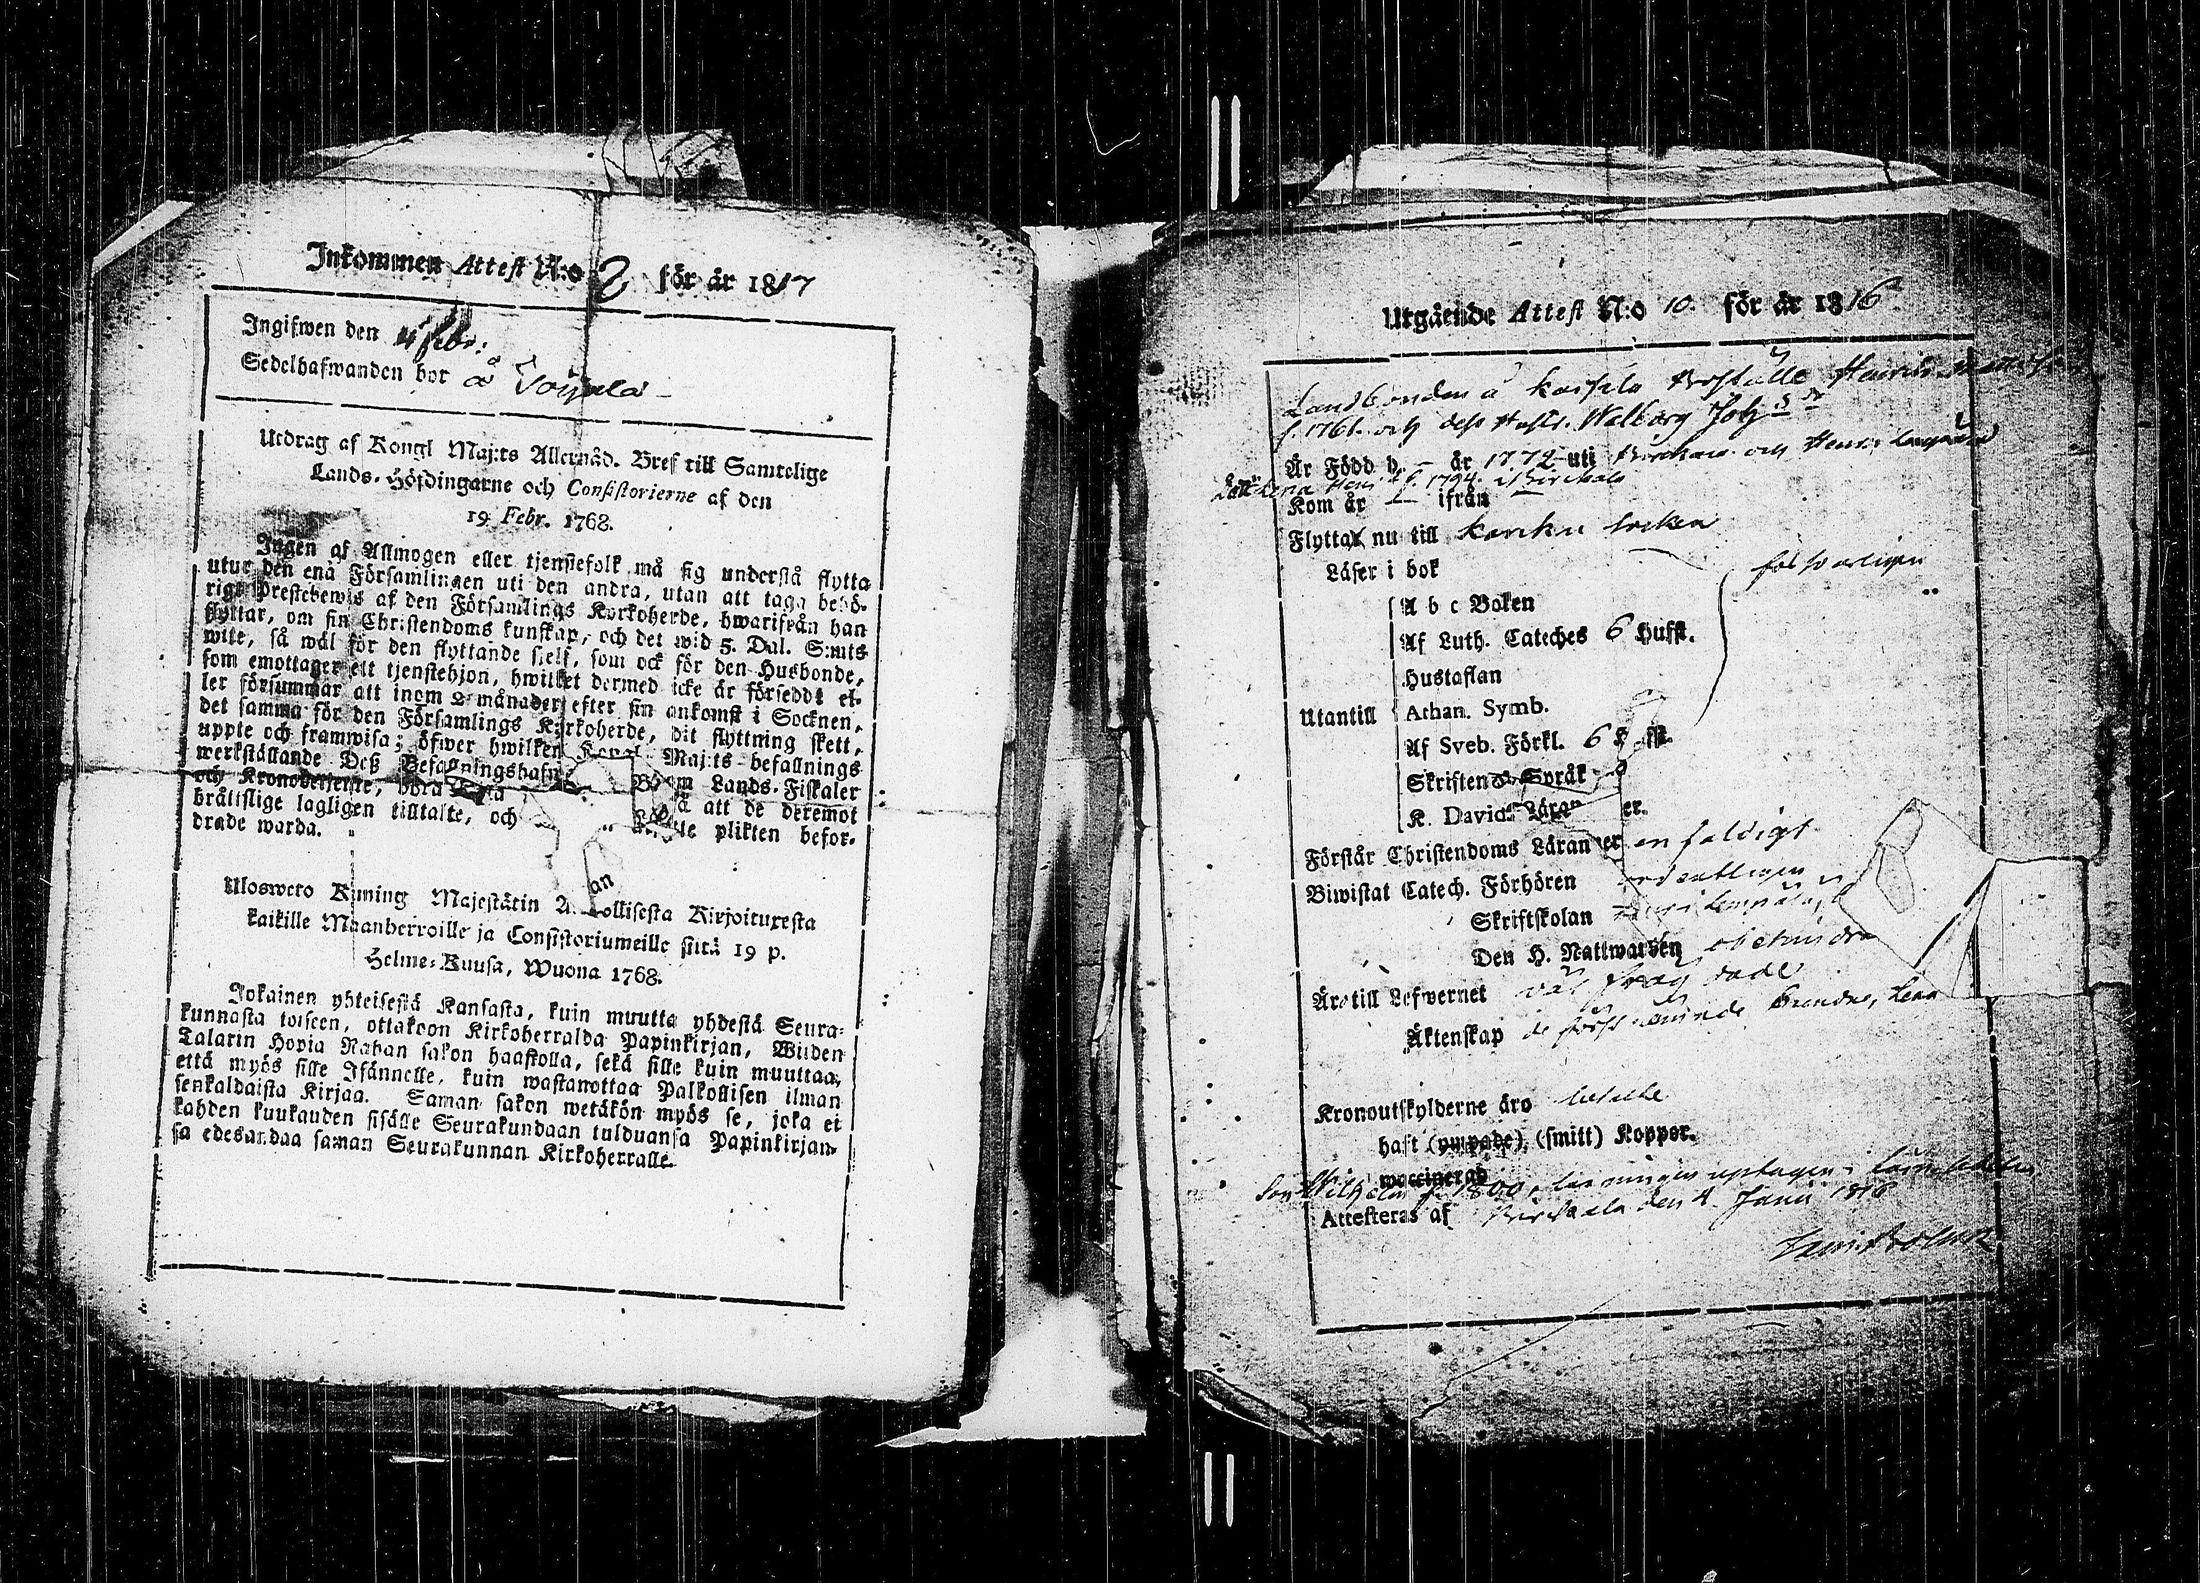 Inkommen Attest N:o 8 för år 1817
Ingifwen den 4 febr:
Sedelhafwanden bor å
Utdrag af Kongl Maj:ts Allernåd. Bref till Samtelige
Lands-Höfdingarne och Consistorierne af den
19 Febr. 1768.
Ingen af Allmogen eller tjenstefolk må sig understå flytta
utur den ena Församlingen uti den andra, utan att taga behö-
rigt Prestebewis af den Församlings Kyrkoherde, hwarifrån han
flyttar, om sin Christendoms kunskap, och det wid 5. Dal. S:mts
wite, så wäl för den flyttande sjelf, som ock för den Husbonde,
som emottager ett tjenstehjon, hwilket dermed icke är försedt el-
ler försummar att inom 2 månader efter sin ankomst i Socknen,
det samma för den Församlings Kyrkoherde, dit flyttning skett,
uppte och framwisa; öfwer hwilken Kongl. Maj:ts befallnings
werkställande Deß Befallningshafw Lands-Fiskaler
och Kronobetjente, böra att de deremot
bråttslige lagligen tilltalte, och plikten befor-
drade warda.
Ulosweto Kuning Majestätin Kirjoituxesta
kaikille Maanherroille ja Consistoriumeille siitä 19 p.
Helme-Kuusa, Wuona 1768.
Jokainen yhteisestä Kansasta, kuin muutta yhdestä Seura-
kunnasta toiseen, ottakoon Kirkoherralda Papinkirjan, Wiiden
Talarin Hopia Rahan sakon haastolla, sekä sille kuin muuttaa,
että myös sille Isännelle, kuin wastanottaa Palkollisen ilman
senkaldaista Kirjaa. Saman sakon wetäkön myös se, joka ei
kahden kuukauden sisälle Seurakundaan tulduansa Papinkirjan-
sa edesandaa saman Seurakunnan Kirkoherralle.
Utgående Attest N:o 10. för år 1816
Landbonden å Boställe Henrik
f. 1761. och dess Hustr. Walborg Joh:s dr
Är Född d. – år 1772 uti och
Lena Henr: f. 1794. i Birckala
Kom år — ifrån
Flyttar nu till Karku socken
Läser i bok försvarligen
A b c Boken
Af Luth. Cateches 6 Hufst.
Hustaflan
Utantill Athan. Symb.
Af Sveb. Förkl. 6
Skriftenes Språk
K. Davids Läran er.
Förstår Christendoms Läran er enfaldigt
Biwistat Catech. Förhören ordentligen
Skriftskolan
Den H. Nattwarden obehindra
Äro till Lefwernet väl frägdade
Äktenskap de förstnämnde bundne, Lena
Kronoutskylderne äro betalte
haft (ympade), (smitt) Koppor.
waccinerad
Son Wilhelm f. 1800,
Attesteras af Birckala den 4. Junii 1816